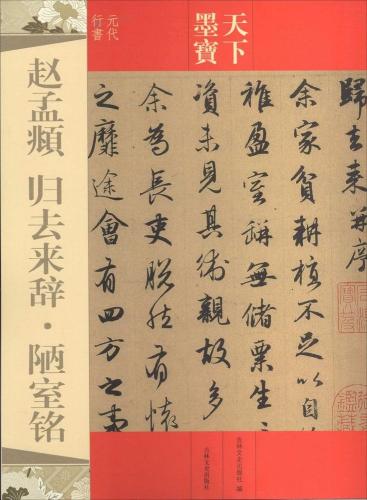 元代
行書
天下
墨寶
赵孟頫 归去来辞·陋室铭
歸去来并序
余家貧耕植不足以自
稚盈室缾無儲粟生
資未見其術親故多
余為長吏脱然有懷
之靡途會有四方之事
吉林文史出版社 编
吉林文史出版社